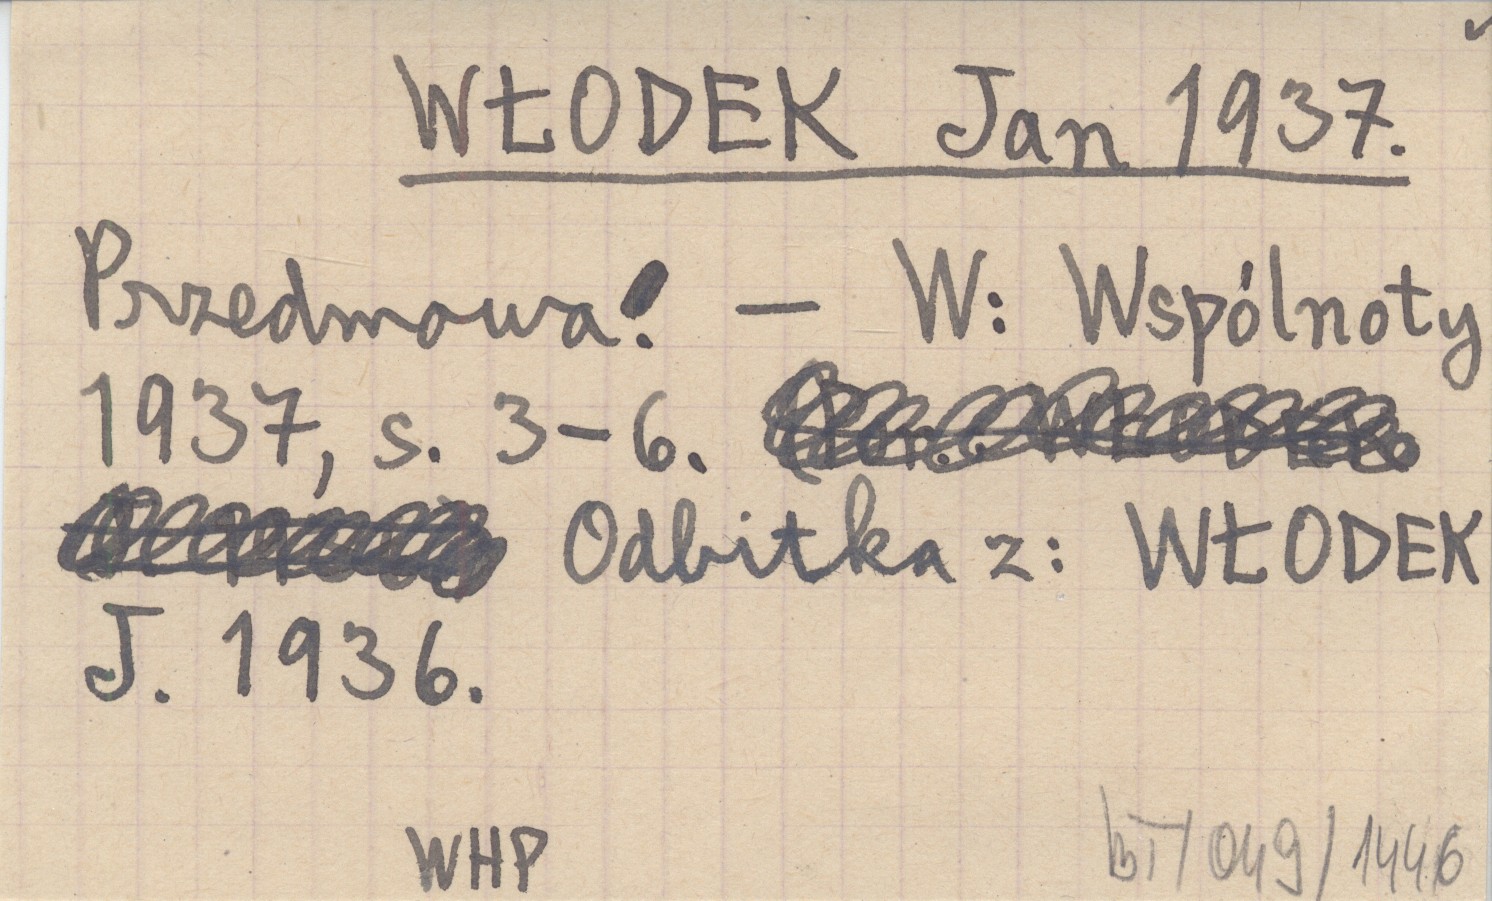 WŁODEK Jan 1937.
Przedmowa! — W: Wspólnoty
1937, s. 3-6.
Odbitka z: WŁODEK
J. 1936.
WHP
BT/049/1446